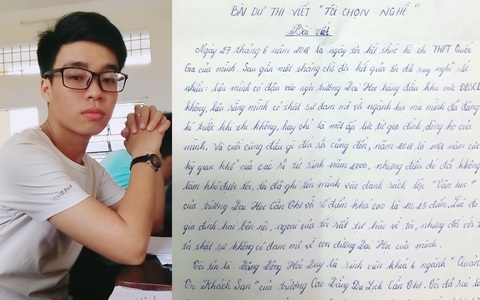 BÀI DỰ THI VIẾT "TÔI CHỌN NGHỀ"
Bài viết
Ngày 27 tháng 6 năm 2018 là ngày tôi kết thúc kì thi THPT Quốc
Gia của mình. Sau gần một tháng chờ đợi kết quả tôi đã suy nghĩ rất
nhiều: liệu mình có đậu vào ngôi trường Đại Học hàng đầu khu vực ĐBSCL
không, liệu rằng mình có thật sự đam mê với ngành học mà mình đã đăng
kí trước khi thi không, hay chỉ là một áp lực từ gia đình dòng họ của
mình. Và cuối cùng điều gì đến rồi cũng đến, năm 2018 là một năm
kỳ của các sĩ tử sinh năm 2000, nhưng điều đó đã không
làm khó được tôi, tôi đã ghi tên mình vào danh sách lớp "Văn học"
của trường Đại Học Cần Thơ với số điểm khá cao là 20,25 điểm. Lúc đó
gia đình, hai bên nội, ngoại của tôi rất tự hào về tôi, nhưng đối với
tôi thật sự không có đam mê về con đường Đại Học của mình.
Tôi tên là: Đặng Đông Hải Duy là sinh viên khoá 6 ngành "Quản
Trị Khách Sạn" của trường Cao Đẳng Du Lịch Cần Thơ. Tôi đã